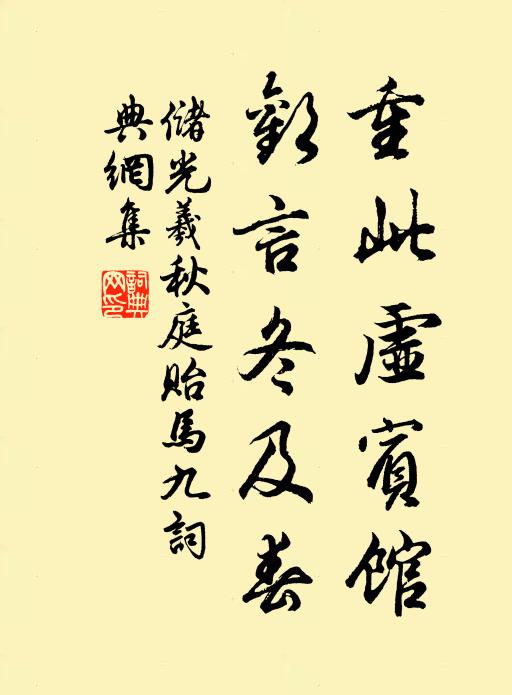 重此虛賓館
歡言冬及春
儲光羲秋庭貽馬九詞
典網集
詞典網印